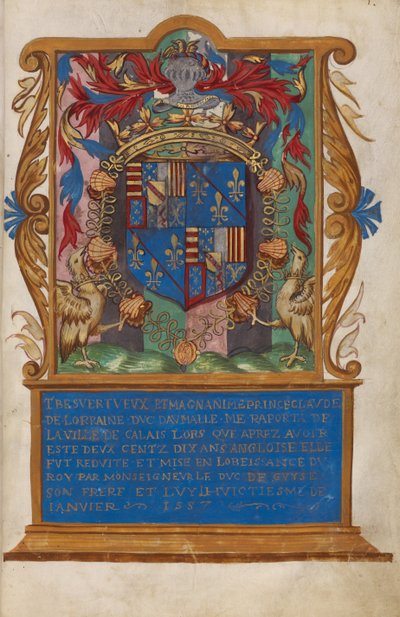 TRESVERTVEUX ET MAGNANIME PRINCE CLAVDE
DE LORRAINE · DVC DAVMALLE · ME RAPORTA DE
LAVILLE DE CALAIS LORS QVE APREZ AVOIR
ESTE DEUX CENTZ DIX ANS ANGLOISE ELLE
FVT REDVITE · ET MISE EN LOBEISSANCE DV
ROY PAR MONSEIGNEVR LE DVC DE GVYSE
SON FRERE ET LVY LE HVICTIESME DE
IANVIER 1557